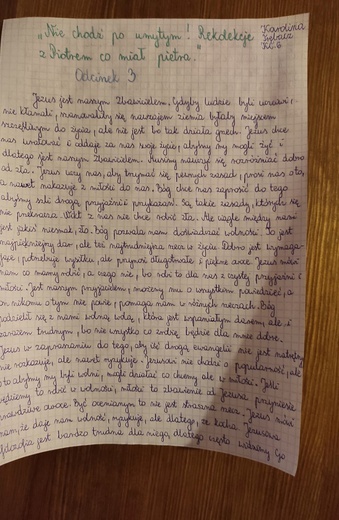 „Nie chodź po umytym! Rekolekcje
z Piotrem co miał pietra."
Karolina
kl.6
Odcinek 3
Jezus jest naszym Zbawicielem. Gdyby ludzie byli
nie kłamali, ziemia byłaby miejscem
szczęśliwym do życia, ale nie jest bo tak działa grzech. Jezus chce
nas uratować i oddaje za nas swoje życie, abyśmy my mogli żyć i
dlatego jest naszym Zbawicielem. Musimy nauczyć się rozróżniać dobro
od zła. Jezus uczy nas, aby trzymać się pewnych zasad, prosi nas o to,
a nawet nakazuje z miłości do nas. Bóg chce nas zaprosić do tego
abyśmy szli drogą przyjaźni i przykazań. Są takie zasady, których się
nie przekracza. Nikt z nas nie chce robić zła. Ale ciągle między nami
jest jakiś niesmak, zło. Bóg pozwala nam doświadczać wolności. To jest
najpiękniejszy dar, ale też najtrudniejsza rzecz w życiu. Dobro jest wymaga-
jące, potrzebuje wysiłku, ale przynosi długotrwałe i piękne owoce. Jezus mówi
nam co mamy robić, a czego nie, bo robi to dla nas z czystej przyjaźni i
miłości. Jest naszym przyjacielem, możemy mu o wszystkim powiedzieć, a
on nikomu o tym nie powie, pomaga nam w różnych rzeczach. Bóg
podzielił się z nami wolną wolą, która jest wspaniałym darem, ale i
zarazem trudnym, bo nie wszystko co zrobię będzie dla mnie dobre.
Jezus w zapraszaniu do tego, aby iść drogą ewangelii nie jest
nie rozkazuje, ale nawet ryzykuje. Jezusowi nie chodzi o popularność, ale
o to abyśmy my byli wolni, mogli działać co chcemy ale w miłości. Jeśli
będziemy to robić w wolności, miłości to zbawienie od Jezusa przyniesie
prawdziwe owoce. Być ocenianym to nie jest straszna rzecz. Jezus mówi
nam, że daje nam wolność, ryzykuje, ale dlatego, że kocha. Jezusowa
jest bardzo trudna dla niego, dlatego często Go